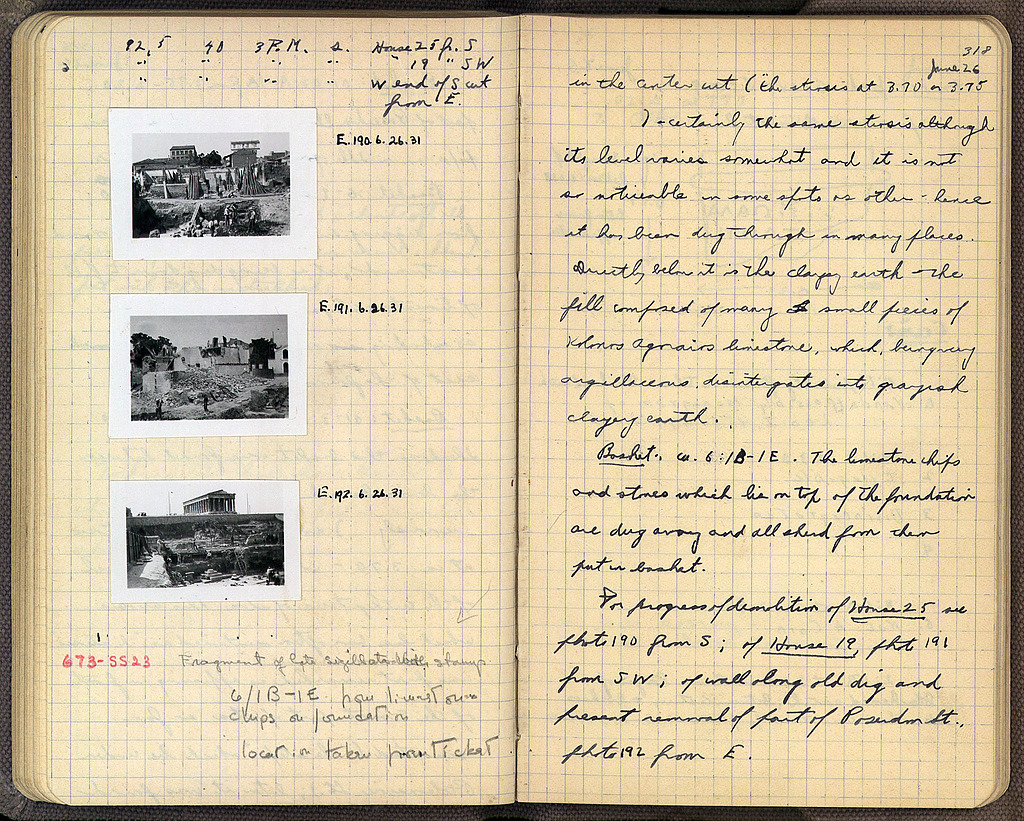 92,5 40 3 P.M. s. House 25 fr. S
" " " " " 19 " SW
" " " " W end of S cut
from E.
E.190.6.26.31
E.191.6.26.31
E.192.6.26.31
1
673-SS23 Fragment of late sigillata with stamp
6/1B-1E from limestone
chips on foundation
location taken from Ticket
318
June 26
in the center cut (the strosis at 3.70 or 3.75
) - certainly the same strosis although
its level varies somewhat and it is not
so noticeable in some spots as other - hence
it has been dug through in many places.
Directly below it is the clayey earth - the
fill composed of many small pieces of
Kolonos Agoraios limestone, which, being very
argillaceous, disintergates into grayish
clayey earth.
Basket. ca. 6:1B-1E. The limestone chips
and stones which lie on top of the foundation
are dug away and all sherd from them
put in basket.
For progress of demolition of House 25 see
photo 190 from S; of House 19, phot 191
from SW; of wall along old dig and
present removal of part of Poseidon St.,
photo 192 from E.